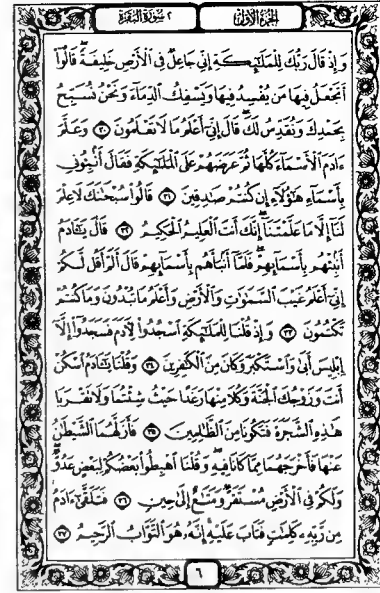 الجزء الأول
٢ سورة البقرة
وَإِذْ قَالَ رَبُّكَ لِلْمَلَٰٓئِكَةِ إِنِّى جَاعِلٌ فِى ٱلْأَرْضِ خَلِيفَةً قَالُوٓا۟
أَتَجْعَلُ فِيهَا مَن يُفْسِدُ فِيهَا وَيَسْفِكُ ٱلدِّمَآءَ وَنَحْنُ نُسَبِّحُ
بِحَمْدِكَ وَنُقَدِّسُ لَكَ قَالَ إِنِّىٓ أَعْلَمُ مَا لَا تَعْلَمُونَ ٣٠ وَعَلَّمَ
ءَادَمَ ٱلْأَسْمَآءَ كُلَّهَا ثُمَّ عَرَضَهُمْ عَلَى ٱلْمَلَٰٓئِكَةِ فَقَالَ أَنۢبِـُٔونِى
بِأَسْمَآءِ هَٰٓؤُلَآءِ إِن كُنتُمْ صَٰدِقِينَ ٣١ قَالُوا۟ سُبْحَٰنَكَ لَا عِلْمَ
لَنَآ إِلَّا مَا عَلَّمْتَنَآ إِنَّكَ أَنتَ ٱلْعَلِيمُ ٱلْحَكِيمُ ٣٢ قَالَ يَٰٓـَٔادَمُ
أَنۢبِئْهُم بِأَسْمَآئِهِمْ فَلَمَّآ أَنۢبَأَهُم بِأَسْمَآئِهِمْ قَالَ أَلَمْ أَقُل لَّكُمْ
إِنِّىٓ أَعْلَمُ غَيْبَ ٱلسَّمَٰوَٰتِ وَٱلْأَرْضِ وَأَعْلَمُ مَا تُبْدُونَ وَمَا كُنتُمْ
تَكْتُمُونَ ٣٣ وَإِذْ قُلْنَا لِلْمَلَٰٓئِكَةِ ٱسْجُدُوا۟ لِـَٔادَمَ فَسَجَدُوٓا۟ إِلَّآ
إِبْلِيسَ أَبَىٰ وَٱسْتَكْبَرَ وَكَانَ مِنَ ٱلْكَٰفِرِينَ ٣٤ وَقُلْنَا يَٰٓـَٔادَمُ ٱسْكُنْ
أَنتَ وَزَوْجُكَ ٱلْجَنَّةَ وَكُلَا مِنْهَا رَغَدًا حَيْثُ شِئْتُمَا وَلَا تَقْرَبَا
هَٰذِهِ ٱلشَّجَرَةَ فَتَكُونَا مِنَ ٱلظَّٰلِمِينَ ٣٥ فَأَزَلَّهُمَا ٱلشَّيْطَٰنُ
عَنْهَا فَأَخْرَجَهُمَا مِمَّا كَانَا فِيهِ وَقُلْنَا ٱهْبِطُوا۟ بَعْضُكُمْ لِبَعْضٍ عَدُوٌّ
وَلَكُمْ فِى ٱلْأَرْضِ مُسْتَقَرٌّ وَمَتَٰعٌ إِلَىٰ حِينٍ ٣٦ فَتَلَقَّىٰٓ ءَادَمُ
مِن رَّبِّهِۦ كَلِمَٰتٍ فَتَابَ عَلَيْهِ إِنَّهُۥ هُوَ ٱلتَّوَّابُ ٱلرَّحِيمُ ٣٧
٦